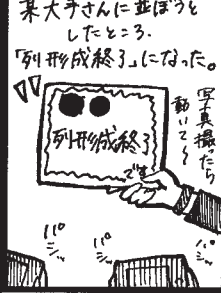 某大手さんに並ぼうと
したところ、
「列形成終了」になった。
列形成終了
です
写真撮ったら
動いて〜
パシッ
パシッ
パシッ